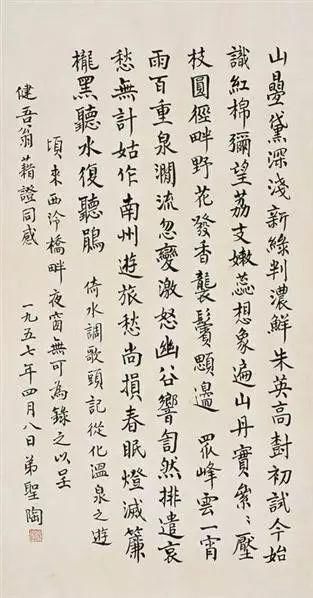 山疊黛深淺新綠判濃鮮朱英高樹初試今始
識紅棉彌望荔支嫩蕊想象遍山丹實纍〻壓
枝圓徑畔野花發香襲鬢顋邊 眾峰雲一宵
雨百重泉澗流忽變激怒幽谷響訇然排遣哀
愁無計姑作南州遊旅愁尚損春眠燈滅簾
櫳黑聽水復聽鵑 倚水調歌頭記從化溫泉之遊
頃來西泠橋畔夜窗無可為錄之以呈
健吾翁藉證同感 一九五七年四月八日弟聖陶